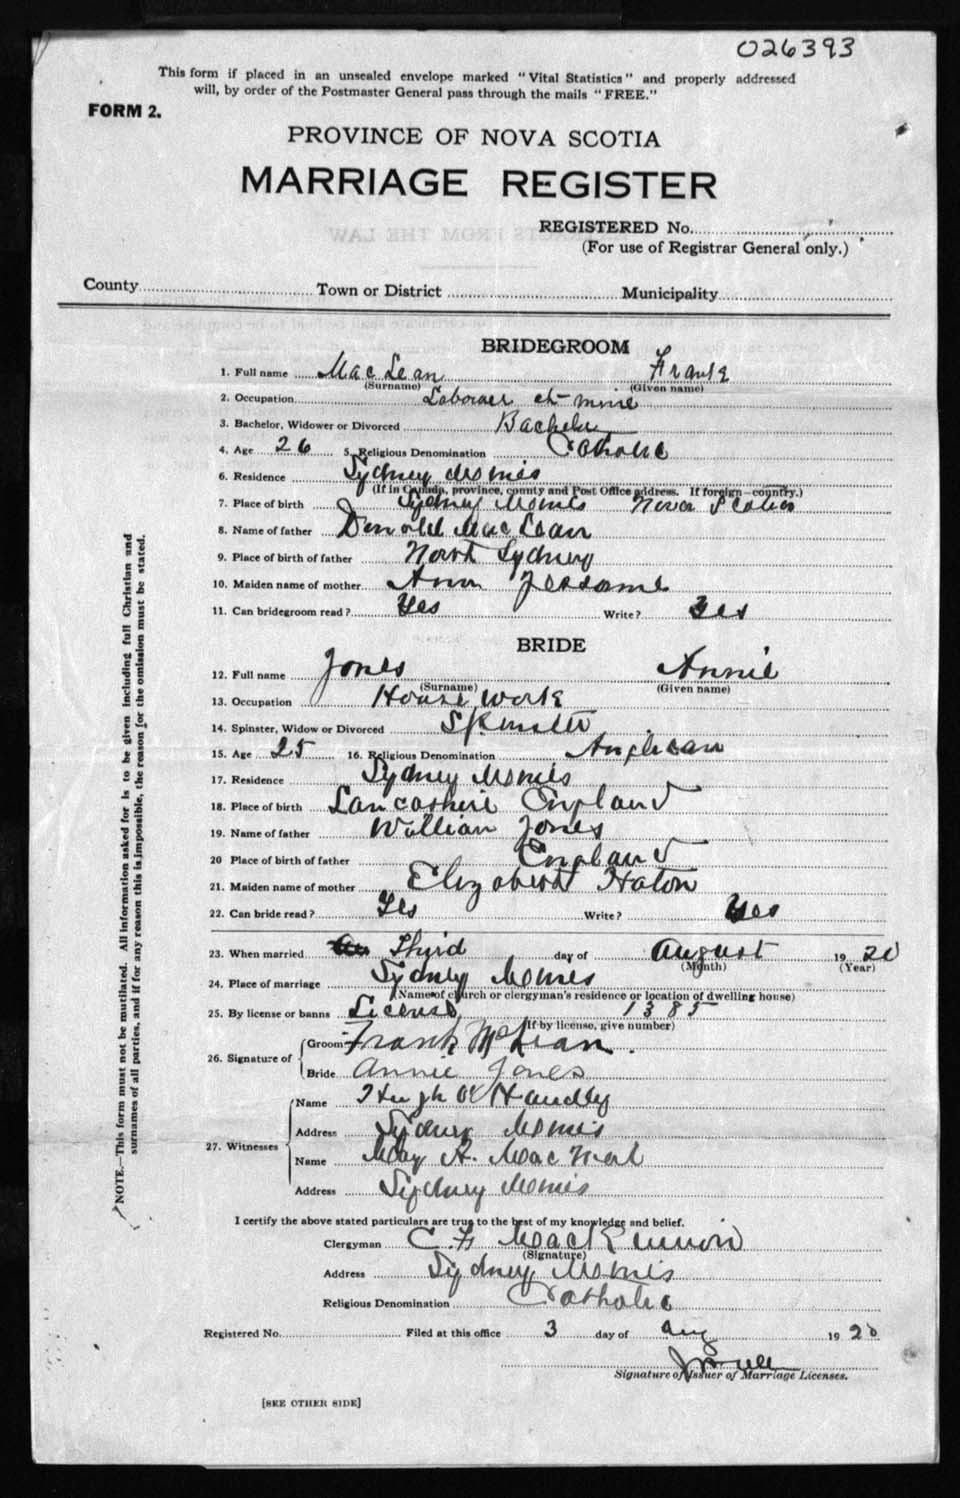 026393
This form if placed in an unsealed envelope marked "Vital Statistics" and properly addressed
will, by order of the Postmaster General pass through the mails "FREE."
FORM 2.
PROVINCE OF NOVA SCOTIA
MARRIAGE REGISTER
REGISTERED No.
(For use of Registrar General only.)
County Town or District Municipality
BRIDEGROOM
1. Full name MacLean Frank
(Surname) (Given name)
2. Occupation Labourer at mine
3. Bachelor, Widower or Divorced Bachelor
4. Age 26 5. Religious Denomination Catholic
6. Residence Sydney Mines
(If in Canada, province, county and Post Office address. If foreign—country.)
7. Place of birth Sydney Mines Nova Scotia
8. Name of father Donald MacLean
9. Place of birth of father North Sydney
10. Maiden name of mother Ann Jessome
11. Can bridegroom read? Yes Write? Yes
BRIDE
12. Full name Jones Annie
(Surname) (Given name)
13. Occupation House work
14. Spinster, Widow or Divorced Spinster
15. Age 25 16. Religious Denomination Anglican
17. Residence Sydney Mines
18. Place of birth Lancashire England
19. Name of father William Jones
20 Place of birth of father England
21. Maiden name of mother Elizabeth Haton
22. Can bride read? Yes Write? Yes
23. When married Third day of August 1920
(Month) (Year)
24. Place of marriage Sydney Mines
(Name of church or clergyman's residence or location of dwelling house)
25. By license or banns License 1385
(If by license, give number)
26. Signature of Groom Frank McLean.
Bride Annie Jones
27. Witnesses Name Hugh O'Handley
Address Sydney Mines
Name May A. MacNeil
Address Sydney Mines
I certify the above stated particulars are true to the best of my knowledge and belief.
Clergyman C. F. MacKinnon
(Signature)
Address Sydney Mines
Religious Denomination Catholic
Registered No. Filed at this office 3 day of Aug 1920
Signature of Issuer of Marriage Licenses.
[SEE OTHER SIDE]
NOTE.—This form must not be mutilated. All information asked for is to be given including full Christian and
surnames of all parties, and if for any reason this is impossible, the reason for the omission must be stated.